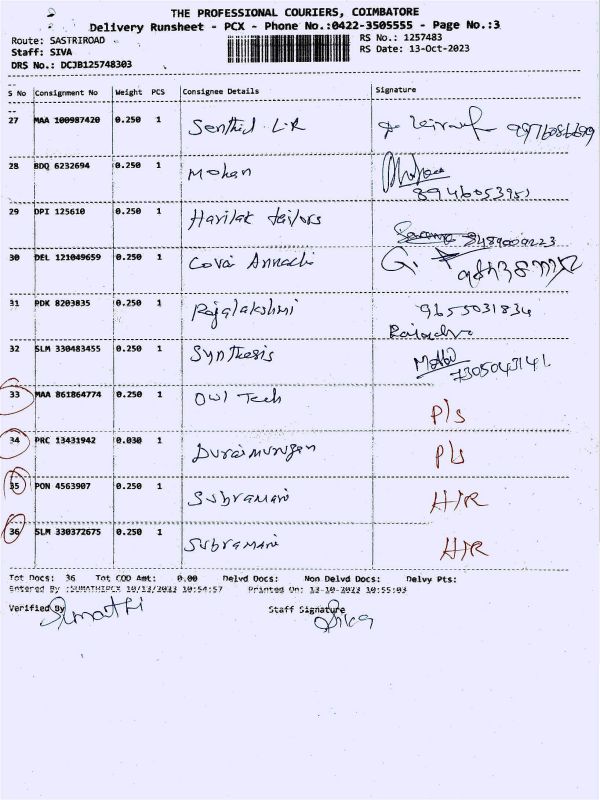 THE PROFESSIONAL COURIERS, COIMBATORE
Delivery Runsheet - PCX - Phone No.:0422-3505555 - Page No.:3
Route: SASTRIROAD RS No.: 1257483
Staff: SIVA RS Date: 13-Oct-2023
DRS No.: DCJB125748303
S No Consignment No Weight PCS Consignee Details Signature
27 MAA 100987420 0.250 1 Senthil L.R
28 BDQ 6232694 0.250 1 Mohan
8946053951
29 DPI 125610 0.250 1 Harilak tailors
8489009223
30 DEL 121049659 0.250 1 Covai Annachi G.
31 PDK 8203835 0.250 1 Rajalakshmi 9655031834
32 SLM 330483455 0.250 1 Synthesis
7305043141
33 MAA 861864774 0.250 1 Owl Tech P/s
34 PRC 13431942 0.030 1 Duraimurugan P/s
35 PON 4563907 0.250 1 Subramani H/R
36 SLM 330372675 0.250 1 Subramani H/R
Tot Docs: 36 Tot COD Amt: 0.00 Delvd Docs: Non Delvd Docs: Delvy Pts:
Entered By :SUMATHIPCX 10/13/2023 10:54:57 Printed On: 13-10-2023 10:55:03
Verified By Staff Signature
Sumathi